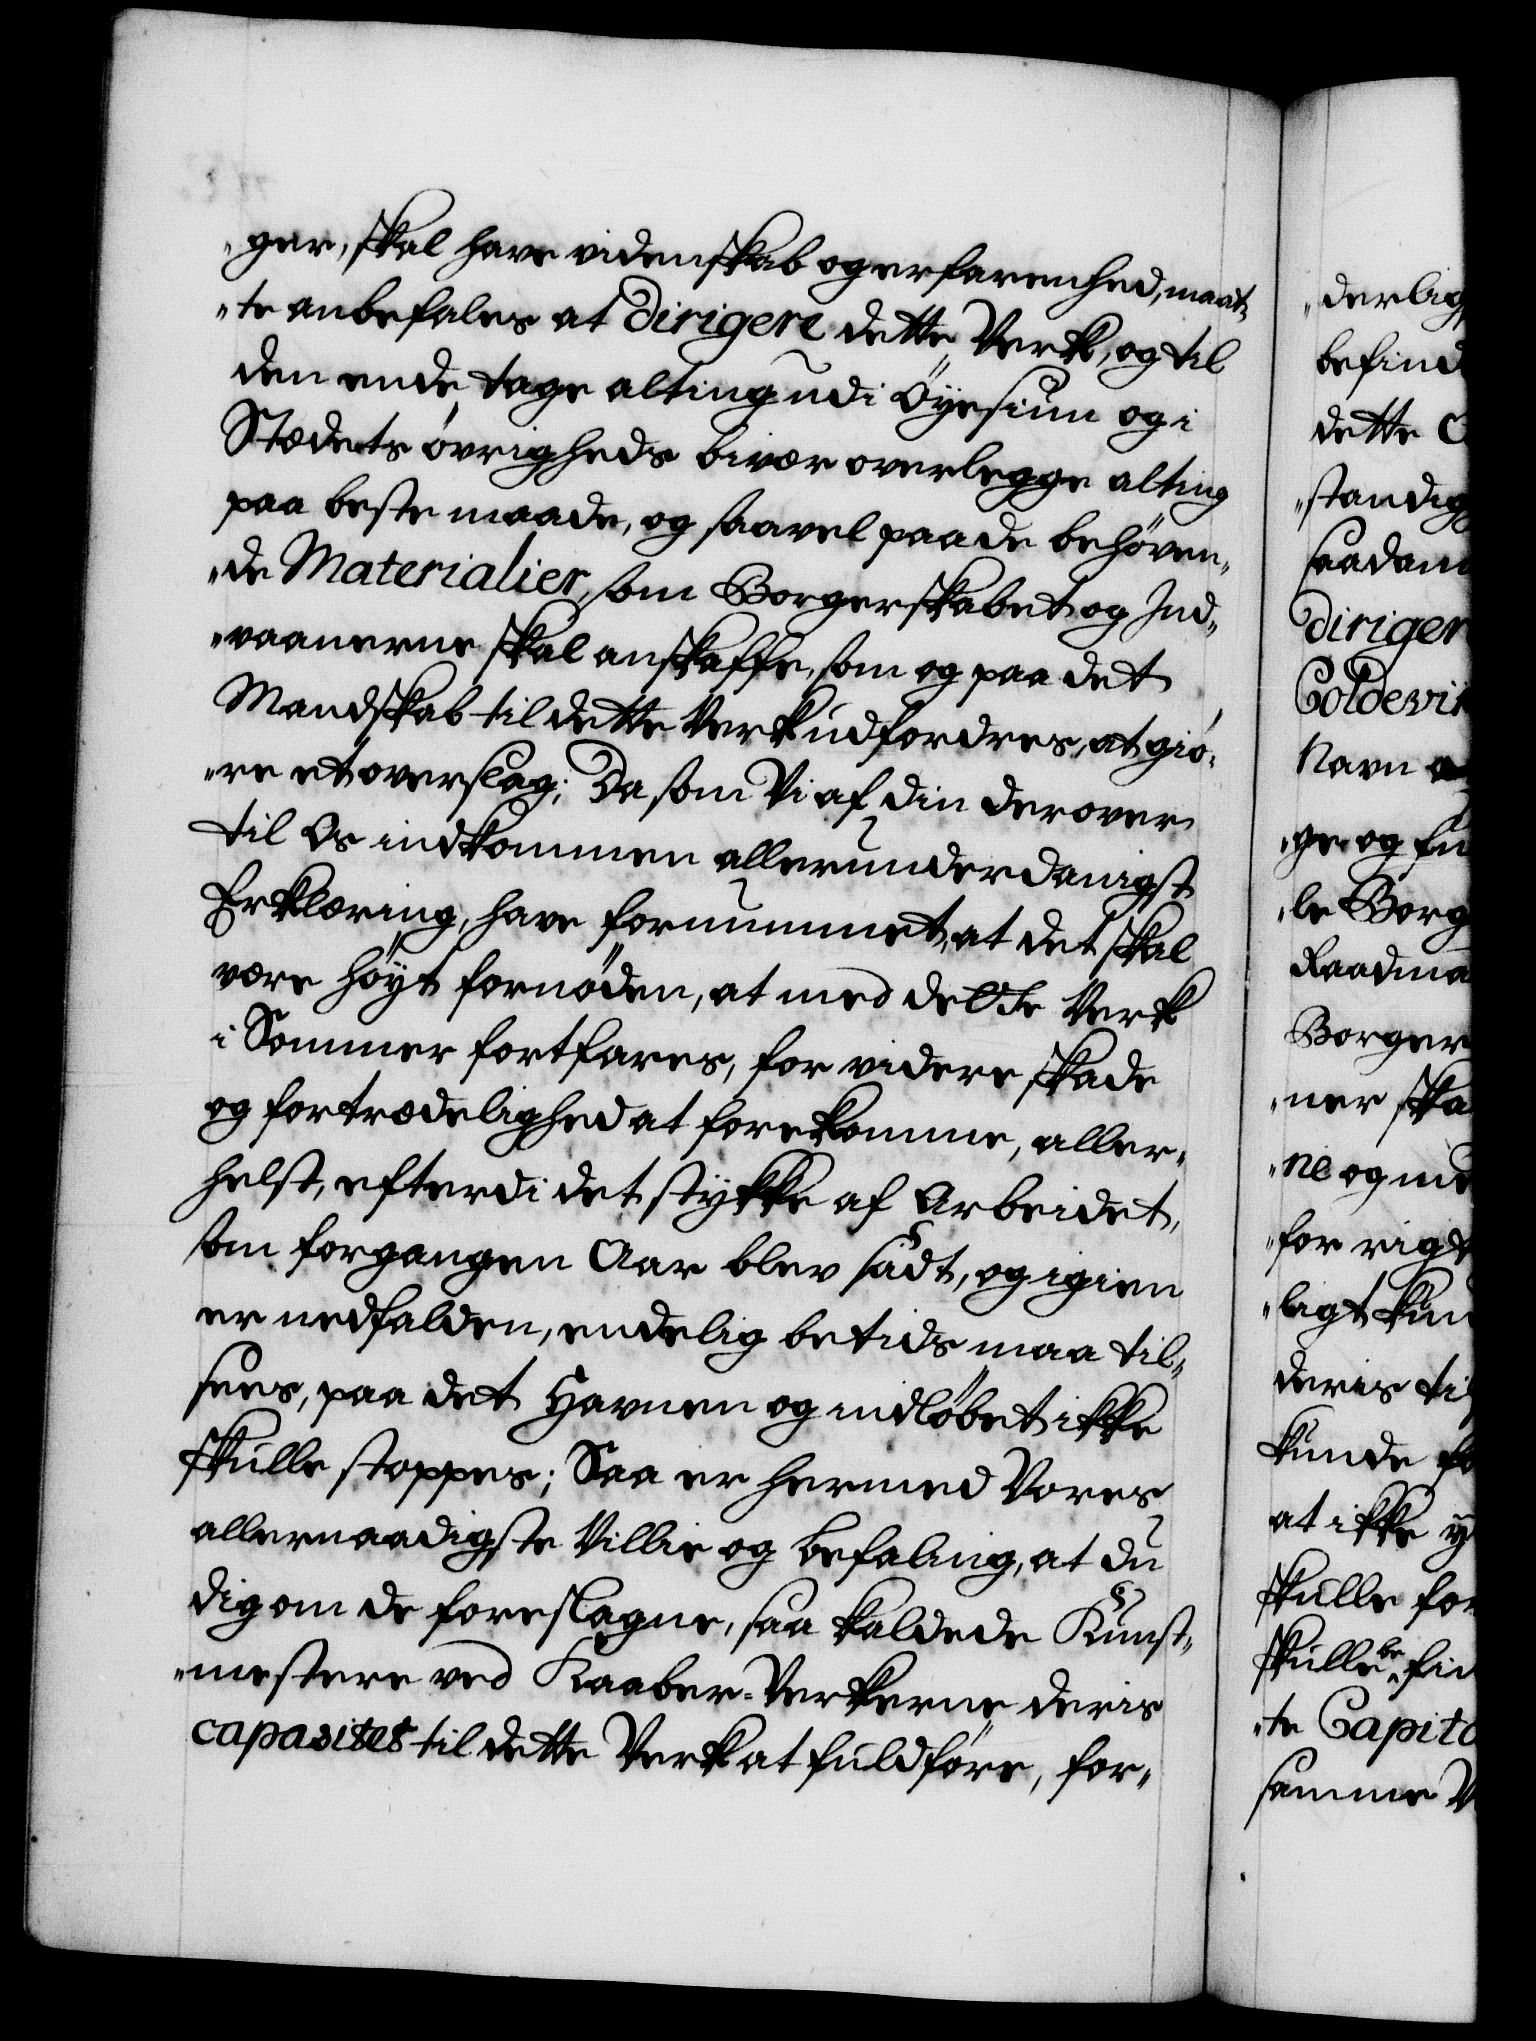 „ger, skal have videnskab og erfarenhed, maat„
„te anbefales at Dirigere dette Verk, og til
den ende tage alting udi Øyesiun og i
Stædets øvrigheds bivær overlegge alting
paa beste maade, og saavel paa de behøven„
„de Materialier, som Borgerskabet og Ind„
„vaanerne skal anskaffe, som og paa det
Mandskab til dette Verk udfordres, at giø„
„re et overslag; Da som Vi af din derover
til Os indkommen allerunderdanigst
Erklæring, have fornummet, at det skal
være høyt fornøden, at med dette Verk
i Sommer fortfares, for videre skade
og fortrædelighed at forekomme, aller„
helst, efterdi det stykke af Arbeidet,
som forgangen Aar blev sadt, og igien
er nedfalden, endelig betids maa til„
sees, paa det Havnen og indløbet ikke
skulle stoppes; Saa er hermed Vores
allernaadigste Villie og befaling, at du
dig om de foreslagne, saa kaldede Kunst„
„mestere ved Kaaber-Verkerne deris
capacitet til dette Verk at fuldføre, for„
„derlig
befind
dette
„standig
saadan
diriger
Coldevi
Navn
„ge og
„le Borg
Raadma
Borger
„ner ska
„ne og
for rigt
„ligt kun
deris til
kunde
at ikke
skulle for
skulle be„fin
„te Capit
samme V